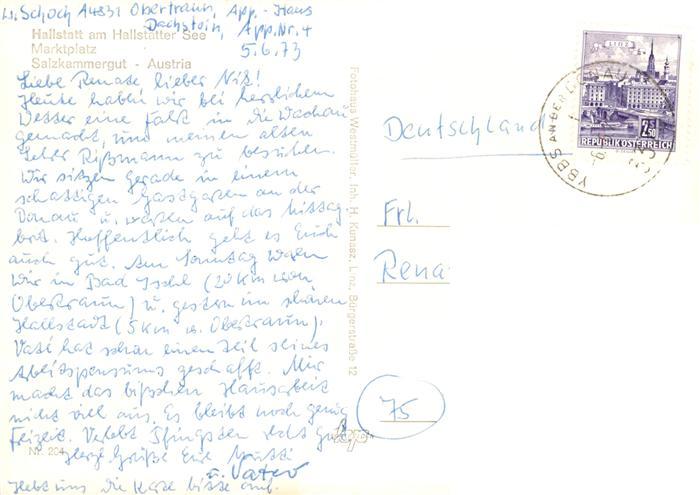 W. Schoch A4831 Obertraun, App.-Haus
Dachstein, App.Nr.4
5.6.73
Hallstatt am Hallstätter See
Marktplatz
Salzkammergut - Austria
Liebe Renate, lieber Niß!
Heute haben wir bei herrlichem
Wetter eine Fahrt in die Wachau
gemacht, um meinen alten
Lehrer Rißmann zu besuchen.
Wir sitzen gerade in einem
schattigen Gastgarten an der
Donau u. warten auf das Mittag-
brot. Hoffentlich geht es Euch
auch gut. Am Sonntag waren
wir in Bad Ischl (20 km von
Obertraun) u. gestern im schönen
Hallstadt (5 km v. Obertraun).
Vati hat schon einen Teil seines
Arbeitspensums geschafft. Mir
macht das bißchen Hausarbeit
nicht viel aus. Es bleibt noch genug
Freizeit. Verlebt Pfingsten recht gut
Nr. 204
Herzl. Grüße Eure Mutti
u. Vater
Hebt uns die Karte bitte auf.
Fotohaus Westmüller, Inh. H. Kunasz, Linz, Bürgerstraße 12
Deutschland
Frl.
Rena
75
LINZ
7.50
REPUBLIK ÖSTERREICH
YBBS AN DER DONAU